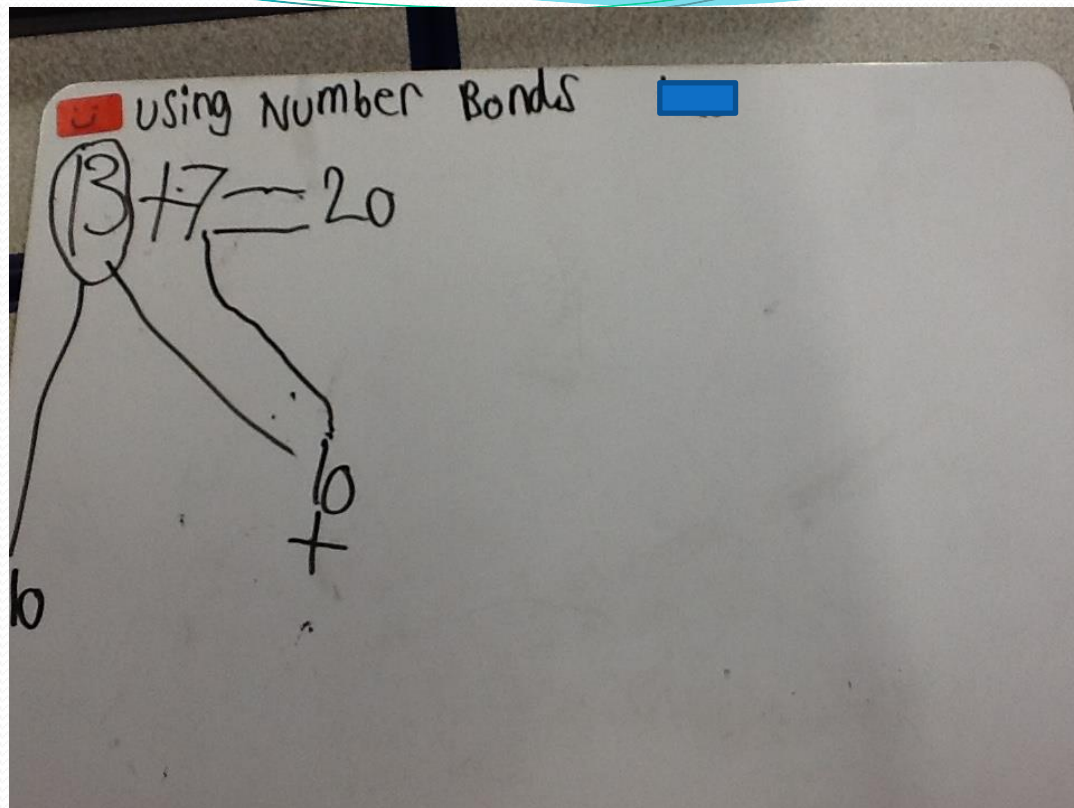 Using Number Bonds
13+7=20
10
+
10